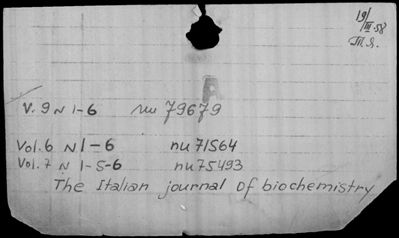 19/III.58
A
V. 9 N 1-6 nu 79679
Vol. 6 N 1-6 nu 71564
Vol. 7 N 1-5-6 nu 75493
The Italian journal of biochemistry